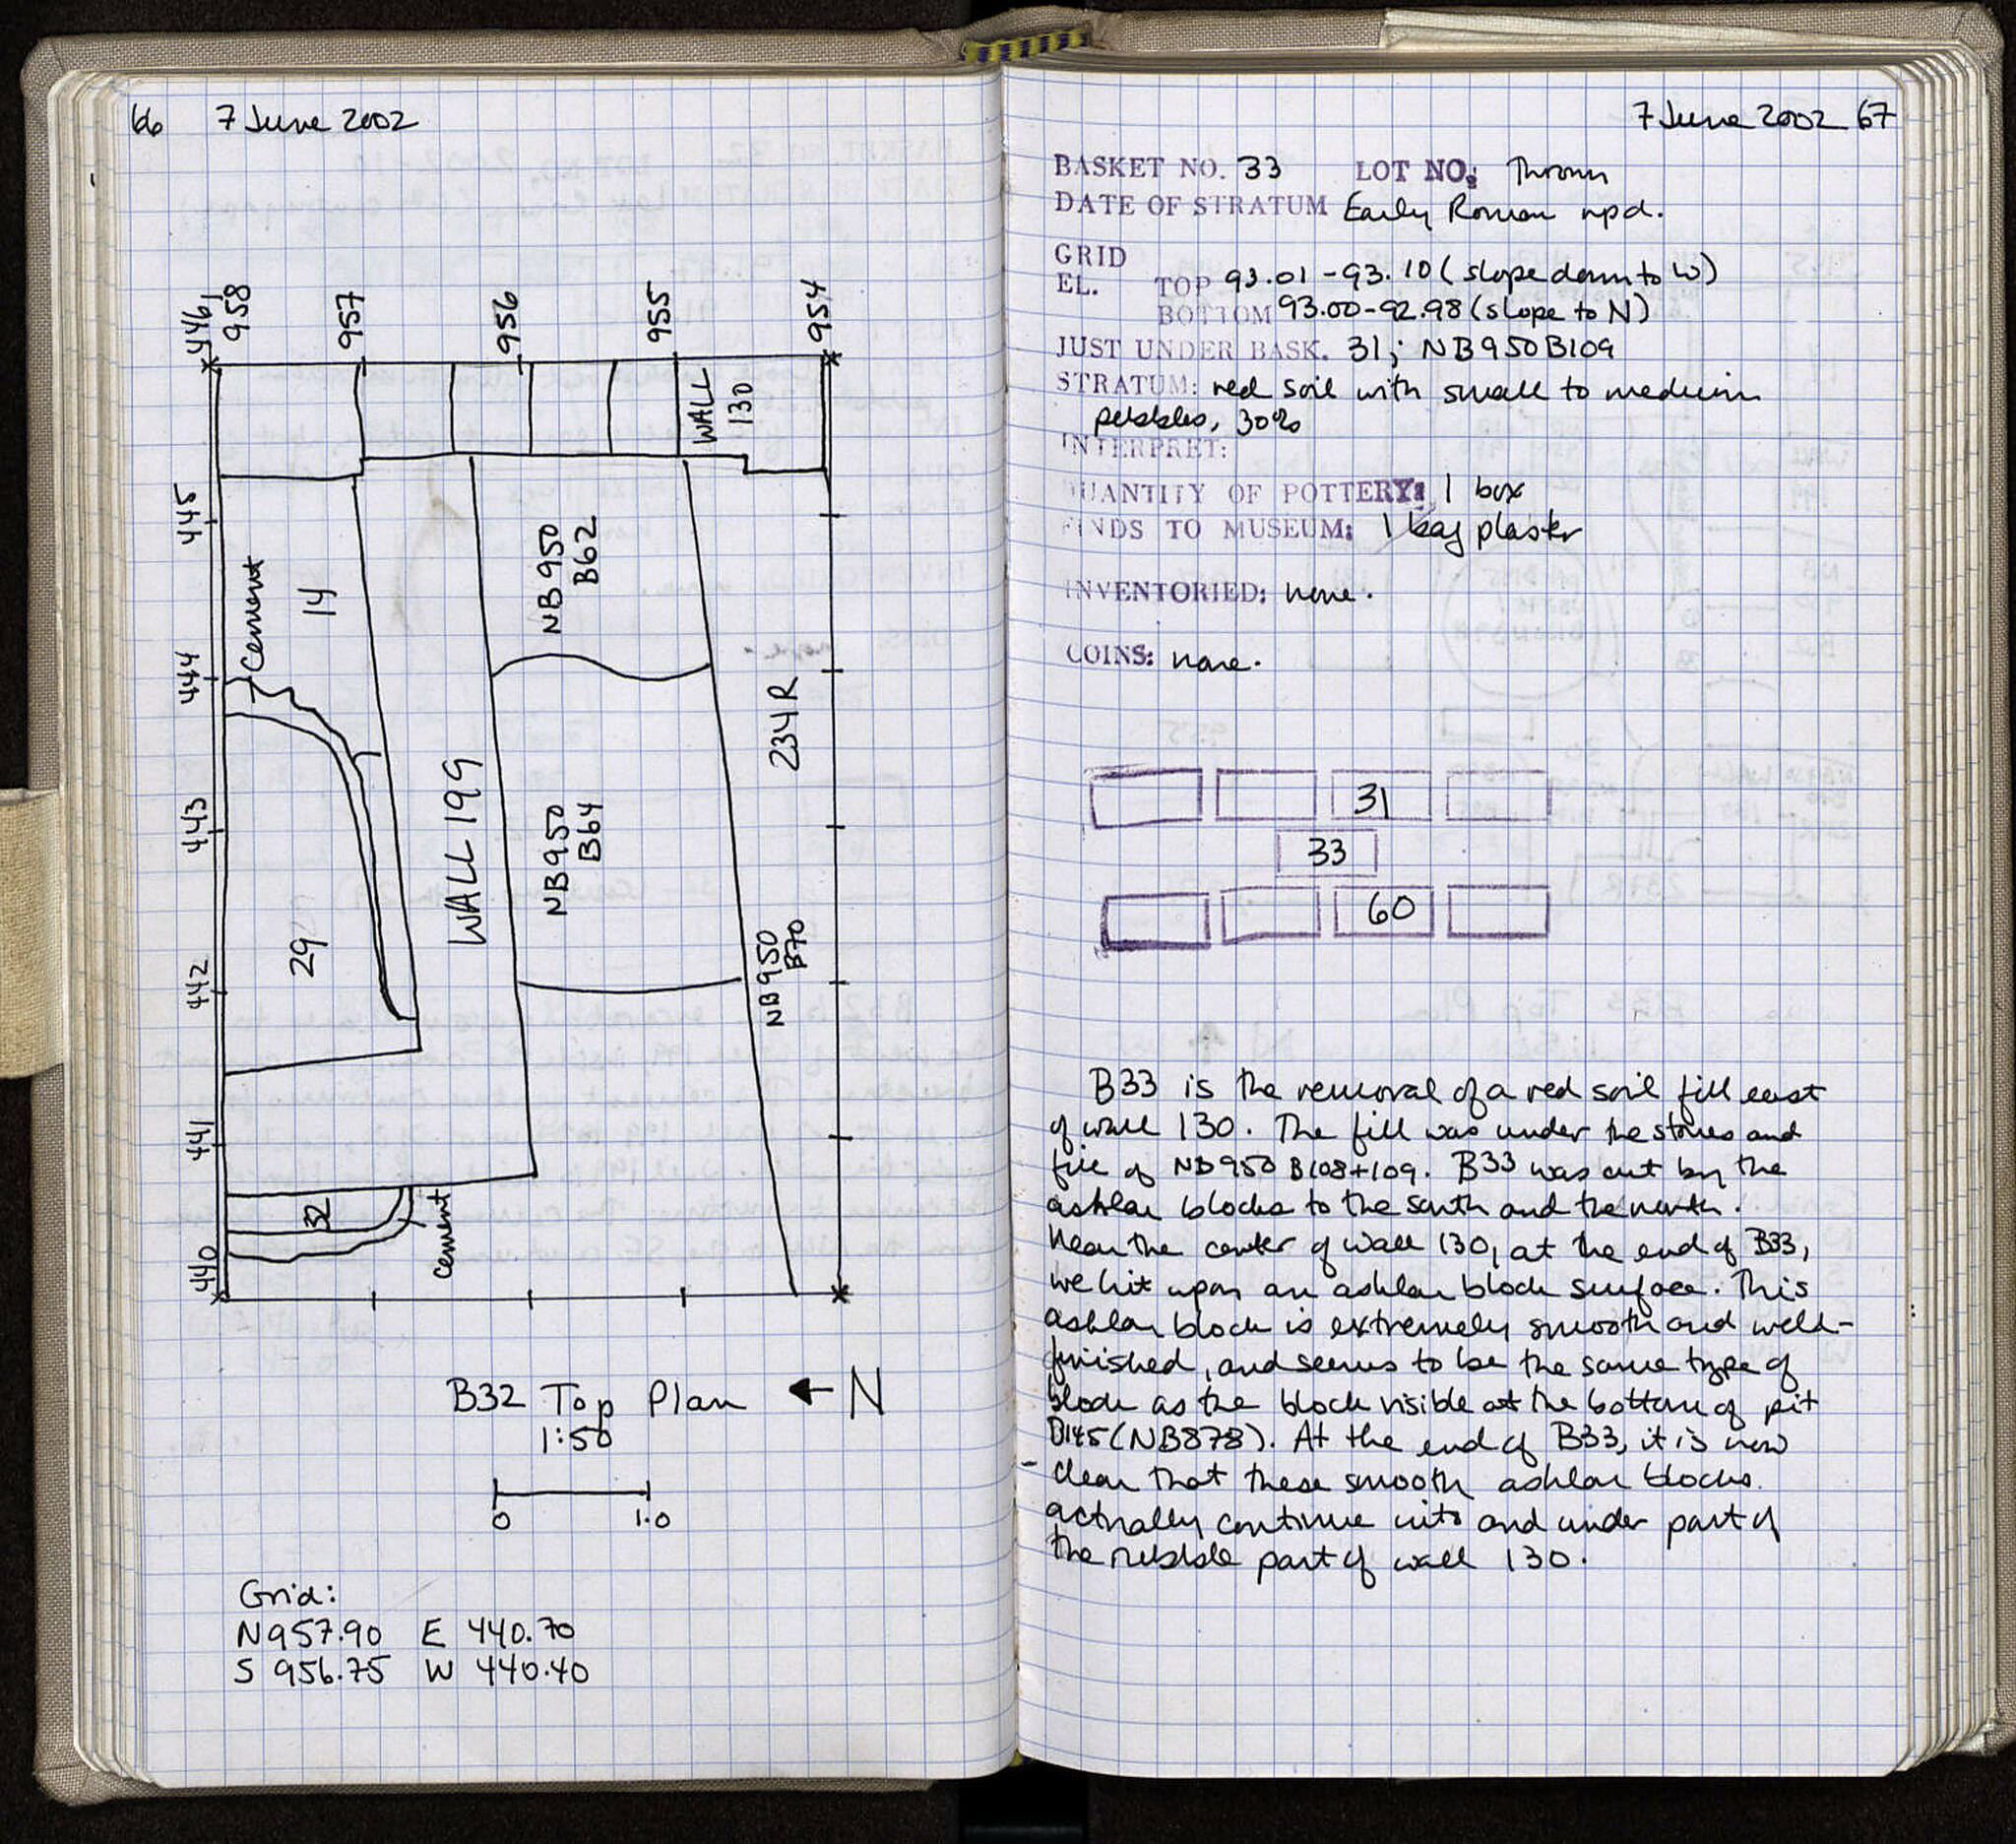 66 7 June 2002
446
958
957
956
955
954
WALL
130
445
444
443
442
441
440
Cement
14
NB950
B62
234R
WALL 199
NB950
B64
29
NB950
B70
32
cement
B32 Top Plan ← N
1:50
0 1.0
Grid:
N957.90 E 440.70
S 956.75 W 440.40
7 June 2002 67
BASKET NO. 33 LOT NO: Thrown
DATE OF STRATUM Early Roman npd.
GRID
EL. TOP 93.01-93.10 (slope down to W)
BOTTOM 93.00-92.98 (slope to N)
JUST UNDER BASK. 31; NB950B109
STRATUM: red soil with small to medium
pebbles, 30%
INTERPRET:
QUANTITY OF POTTERY: 1 box
FINDS TO MUSEUM: 1 bag plaster
INVENTORIED: none.
COINS: none.
31
33
60
B33 is the removal of a red soil fill east
of wall 130. The fill was under the stones and
fill of NB950 B108+109. B33 was cut by the
ashlar blocks to the south and the north.
Near the center of wall 130, at the end of B33,
we hit upon an ashlar block surface. This
ashlar block is extremely smooth and well-
finished, and seems to be the same type of
block as the block visible at the bottom of pit
B145 (NB878). At the end of B33, it is now
- clear that these smooth ashlar blocks
actually continue into and under part of
the rubble part of wall 130.